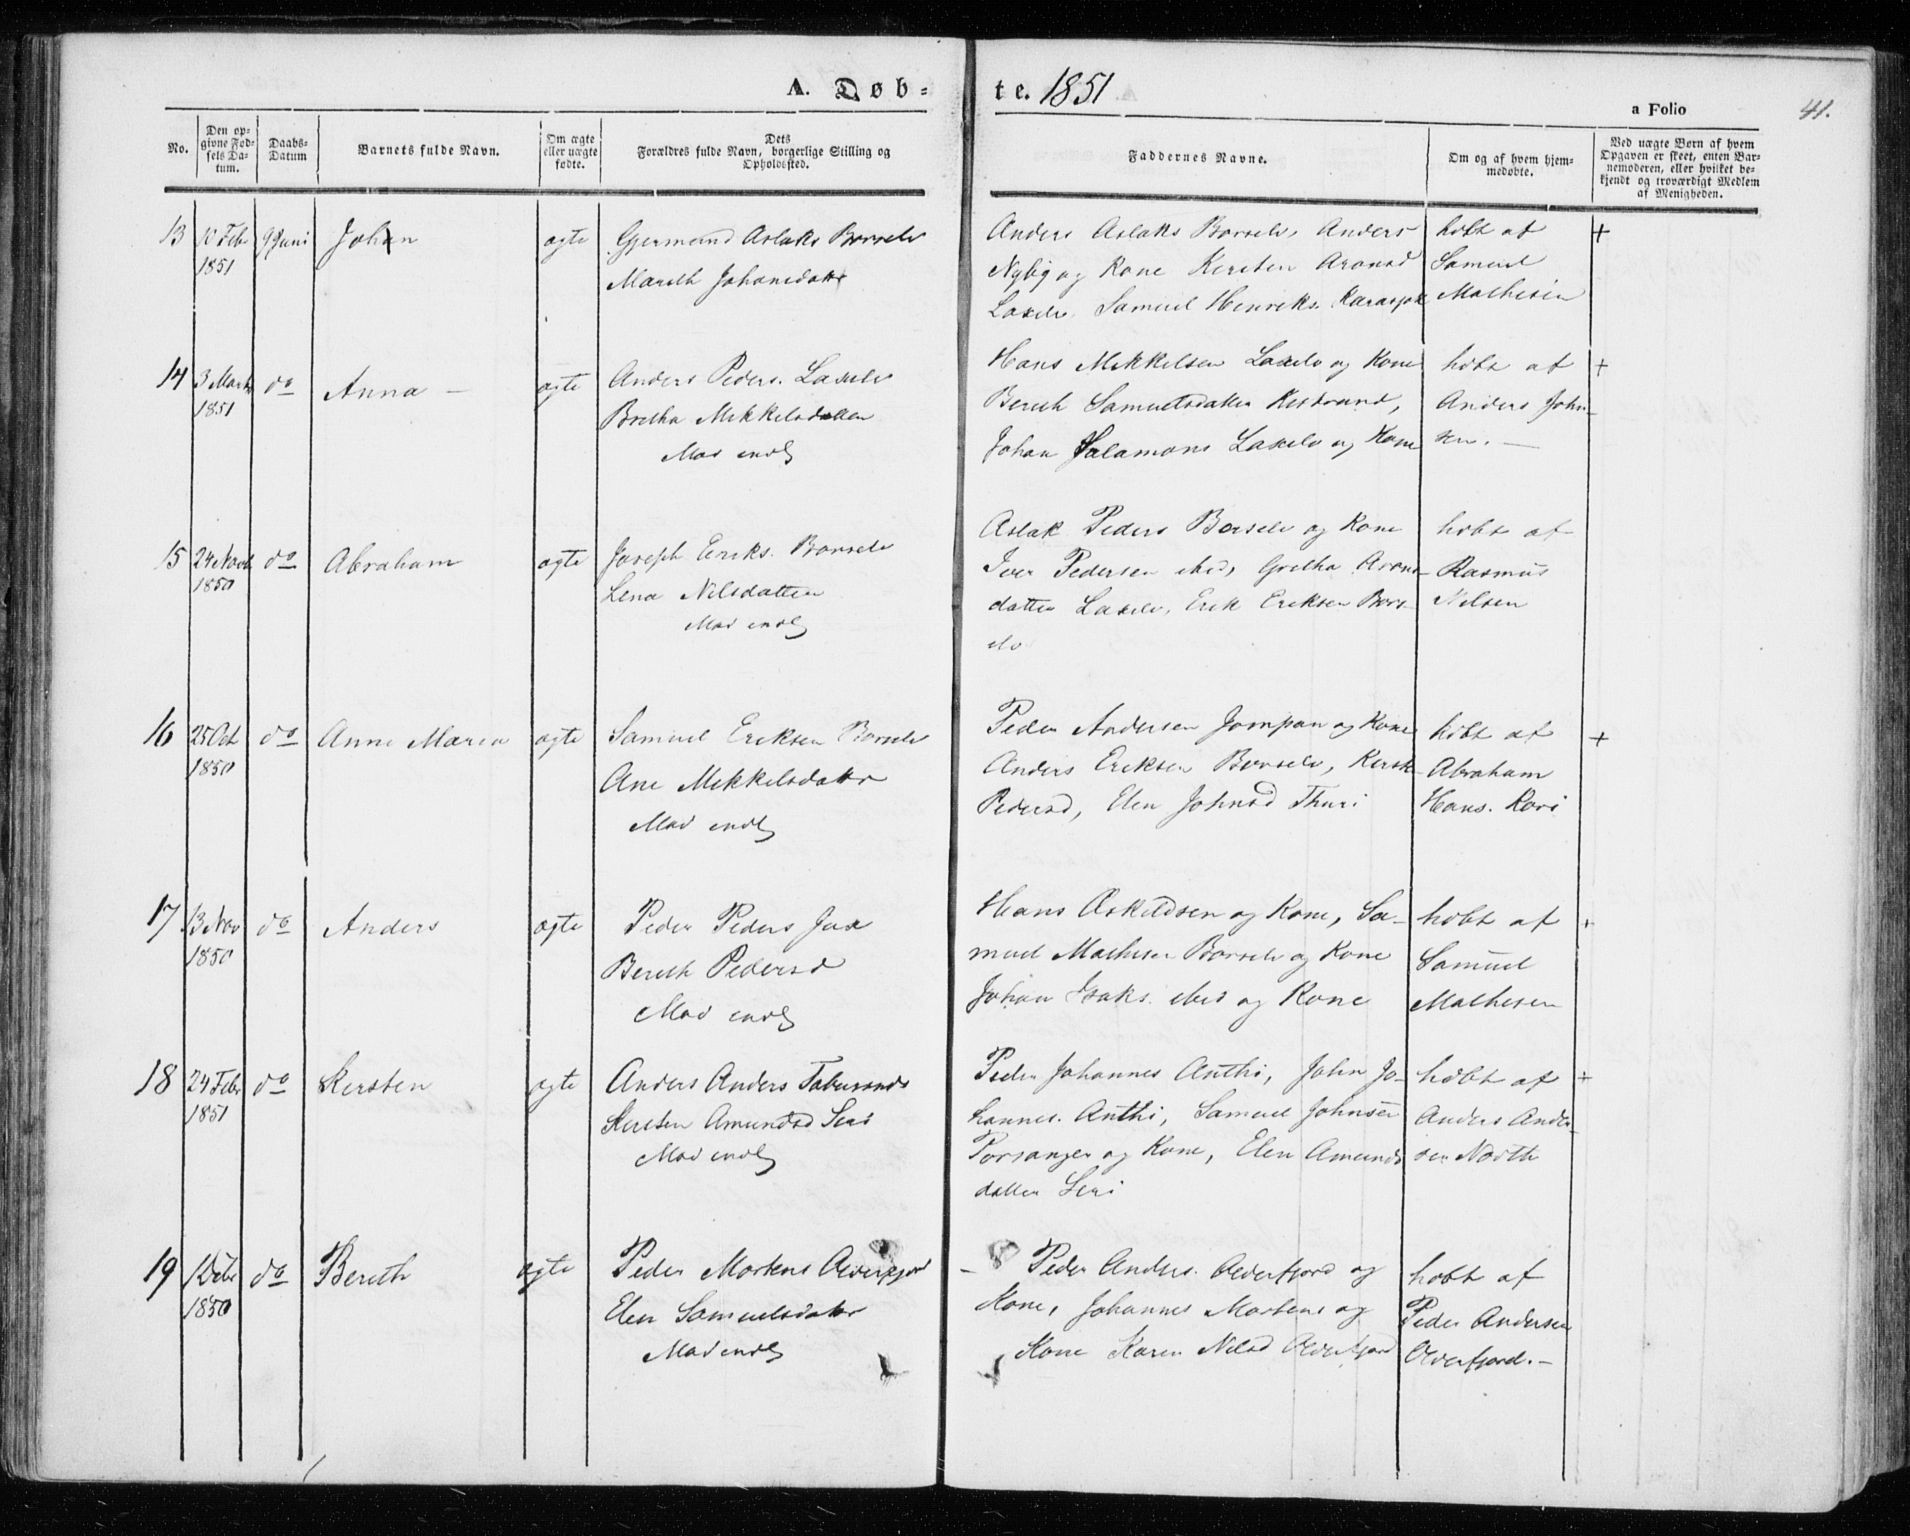 A. Døb-
te. 1851
a Folio
41.
No.
Den op-
givne Fød-
sels Da-
tum.
Daabs-
Datum
Barnets fulde Navn.
Om ægte
eller uægte
fødte.
Dets
Forældres fulde Navn, borgerlige Stilling og
Opholdsted.
Faddernes Navne.
Om og af hvem hjem-
medøbte.
Ved uægte Born af hvem
Opgaven er skeet, enten Bar-
nemoderen, eller hvilket be-
kjendt og troværdigt Medlem
af Menigheden.
13
10 Feb
1851
9 Juni
Johan
ægte
Gjermund Aslaks Borselv
Mareth Johansdatr
Anders Aslaks Borselv, Anders
Nybyg og Kone Kersten Aronsd
Laxelv. Samuel Henriks. Karasjok
hdbt af
Samuel
Mathisen
+
14
3 Marts
1851
do
Anna —
ægte
Anders Peders. Laxelv
Bretha Mikkelsdatter
Mod indl
Hans Mikkelsen Laxelv og Kone
Bereth Samuelsdatter Kistrand,
Johan Salamons Laxelv og Kone
hdbt af
Anders John-
sen. —
+
15
24 Novb
1850
do
Abraham
ægte
Joseph Eriks. Borselv
Lena Nilsdatter
Mod indl
Aslak Peders Borselv og Kone
Iver Pedersen ibid, Gretha Arons-
datter Laxelv, Erik Eriksen Bors-
elv
hdbt af
Rasmus
Nilsen
16
25 Oct
1850
do
Anne Maria
ægte
Samuel Eriksen Borselv
Ane Mikkelsdatr
Mod indl
Peder Andersen Jompan og Kone
Anders Eriksen Borselv, Kerst-
Pedersd, Elen Johnsd Thuri
hdbt af
Abraham
Hans. Rovi
+
17
13 Nov
1850
do
Anders
ægte
Peder Peders Jux
Bereth Pedersd
Mod indl
Hans Eskildsen og Kone, Sa-
muel Mathisen Borselv og Kone
Johan Isaks. ibid og Kone
hdbt af
Samuel
Mathesen
+
18
24 Febr
1851
do
Kersten
ægte
Anders Anders
Kersten Amundsd Siri
Mod indl
Peder Johannes Anthi, John Jo-
hannes. Anthi, Samuel Johnsen
Porsanger og Kone, Elen Amunds
datter Siri
hdbt af
Anders Ander-
sen
+
19
1850
do
Bereth
ægte
Peder Mortens Olderfjord
Elen Samuelsdatr
Mod indl
Peder Anders. Olderfjord og
Kone, Johannes Mortens og
Kone Karen Nilsd Olderfjord
hdbt af
Peder Andersen
Olderfjord. —